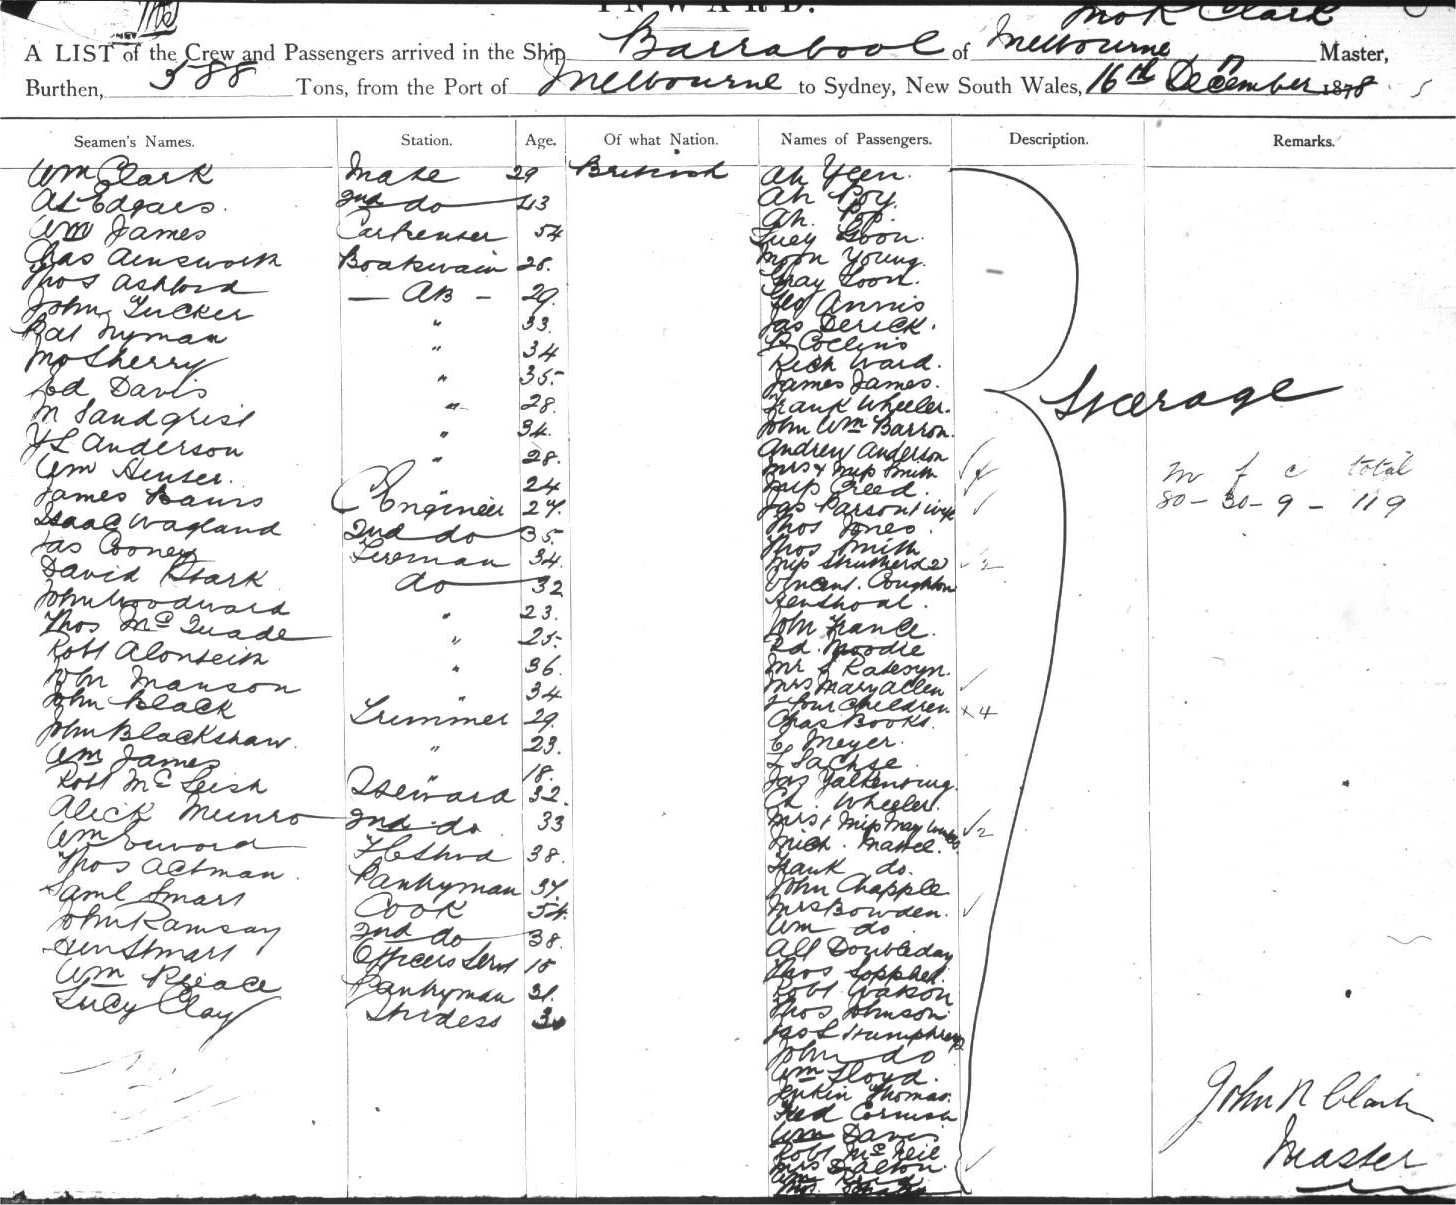 INWARD.
Jno R Clark
A LIST of the Crew and Passengers arrived in the Ship Barrabool of Melbourne Master,
Burthen, 588 Tons, from the Port of Melbourne to Sydney, New South Wales, 16th December 1878
Seamen's Names. Station. Age. Of what Nation. Names of Passengers. Description. Remarks.
Wm Clark Mate 29 British Ah Yeen.
Al Edgars. 2nd do 43 Ah Poy.
Wm James Carpenter 54 Ah.
Chas Ainsworth Boatswain 28. Luey Goon.
Thos Ashford — AB — 29. Moon Young.
John Tucker " 33. Loon.
Pat Nyman " 34 Annis
McSherry " 35. Jas Derick.
Ed Davis " 28. Collins
M Sandgrist " 34. Rich Ward.
Y L Anderson " 28. James James.
Wm 24 Frank Wheeler.
James Engineer 27. John Wm Barron.
Isaac Wagland 2nd do 35. Andrew Anderson
Jas Cooney Fireman 34. Mrs & Miss Smith
David Stark do 32 Miss Creed.
John Woodward " 23. Jas Parsons & wife
Thos McQuade " 25. Thos Jones
Robt Alonteith " 36. Thos Smith
John Manson " 34 Miss 2
John Black Trimmer 29. Vincent Coughton
John Blackshaw. " 23.
Wm James " 18. John France.
Robt McLeish Steward 32. Ed. Moodie
Alick Munro 2nd do 33 Mr
Wm 38. Mrs Mary Allen
Thos Actman. Pantryman 37. & four children. x4
Saml Smart Cook 54. Chas Books.
John Ramsay 2nd do 38. C Meyer.
Hen Smart Officers Servt 15 L Sachse
Wm Pantryman 31. Jas
Lucy Clay Stwdess 30 Ch. Wheeler.
Mrs & Miss 2
Mich.
Frank do.
John Chapple
Mrs Bowden.
Wm do
Alf Doubleday
Thos
Robt Watson
Thos Johnson
Jas L Humphreys
John do
Wm Floyd.
Jenkin Thomas.
Fred Cornish
Wm Davis
Robt McNeil
Mrs Dalton.
Steerage
m f c total
80 - 30 - 9 - 119
John R Clark
Master